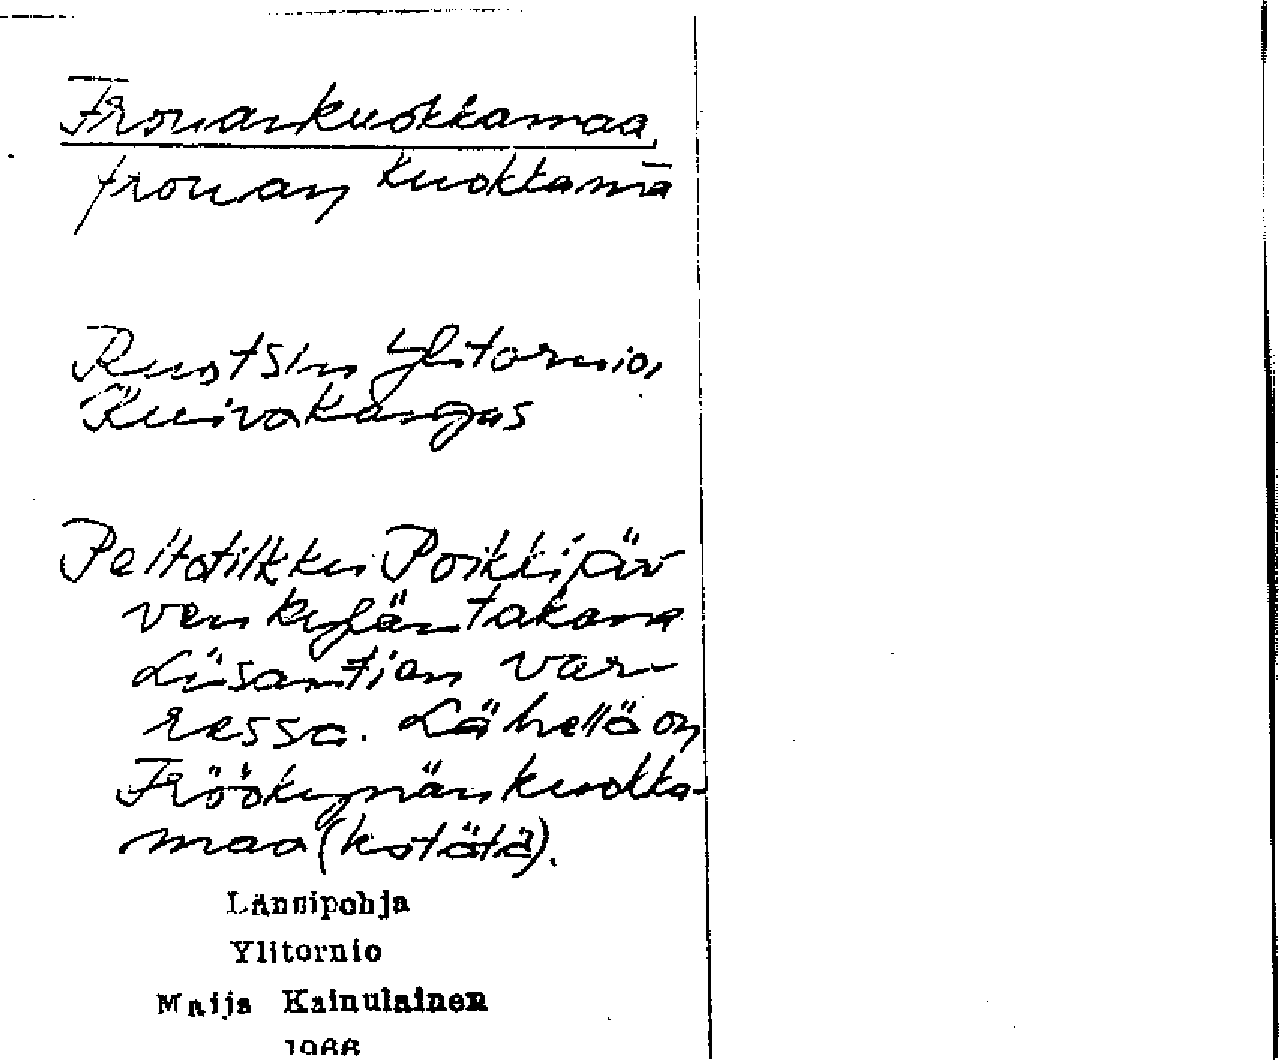 Frouankuokkamaa
frouan kuokkamā
Ruotsin Ylitornio,
Kuivakangas
Peltotilkku Poikkijär
ven kylän takana
Liisantien var-
ressa. Lähellä on
Röökynänkuokka-
maa (kstätä).
Länsipohja
Ylitornio
Maija Kainulainen
1966